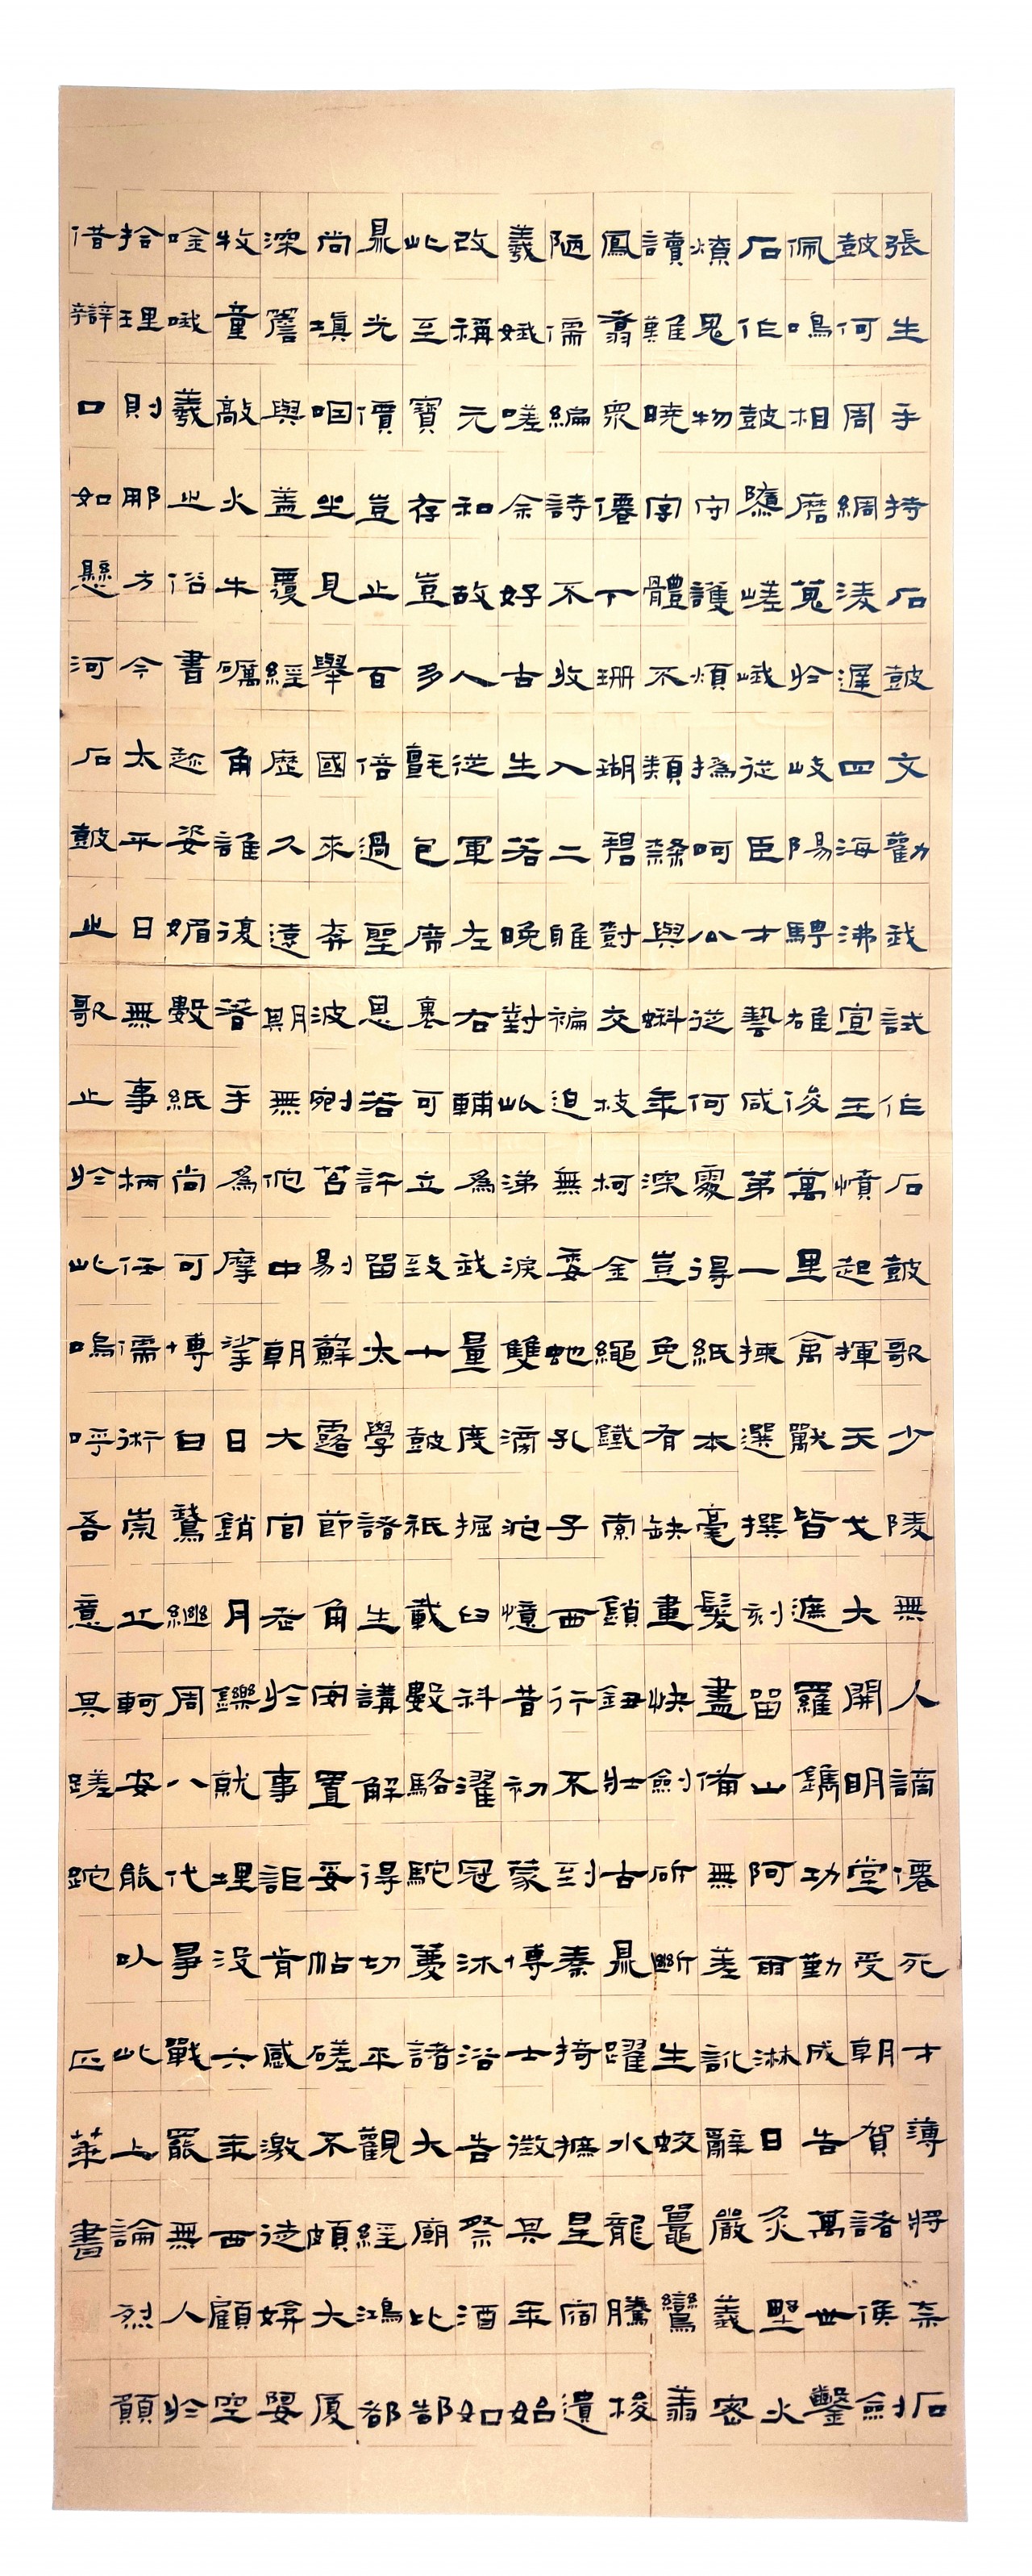 張生手持石鼓文勸我試作石鼓歌少陵無人謫僊死才薄將奈石
鼓何周綱淩遲四海沸宣王憤起揮天戈大開明堂受朝賀諸侯劍
佩鳴相磨蒐於岐陽騁雄俊萬里禽獸皆遮羅鐫功勒成告萬世鑿
石作鼓隳嵯峨從臣才藝咸第一揀選撰刻留山阿雨淋日炙野火
燎鬼物守護煩撝呵公從何處得紙本毫髮盡備無差訛辭嚴義密
讀難曉字體不類隸與蝌年深豈免有缺畫快劍斫斷生蛟鼉鸞翥
鳳翥眾僊下珊瑚碧對交枝柯金繩鐵索鎖鈕壯古鼎躍水龍騰梭
陋儒編詩不收入二雅褊迫無委蛇孔子西行不到秦掎摭星宿遺
羲娥嗟余好古生若晚對此涕淚雙滂沱憶昔初蒙博士徵其年始
改稱元和故人從軍左右輔為我量度掘臼科濯冠沐浴告祭酒如
此至寶存豈多氈包席裹可立致十鼓祇載數駱駝薦諸大廟比郜
鼎光價豈止百倍過聖恩若許留太學諸生講解得切平觀經鴻都
尚填咽坐見舉國來奔波剜苔剔蘇露節角安置妥帖磋不頗大廈
深簷與蓋覆經歷久遠期無佗中朝大官老於事詎肯感激徒媕娿
牧童敲火牛礪角誰復著手為摩挲日銷月鑠就埋沒六年西顧空
唫哦羲之俗書趁姿媚數紙尚可博白鵝繼周八代爭戰罷無人於
拾理則那方今太平日無事柄任儒術崇丘軻安能以此上論烈願
借辯口如懸河石鼓之歌止於此嗚呼吾意其蹉跎 書